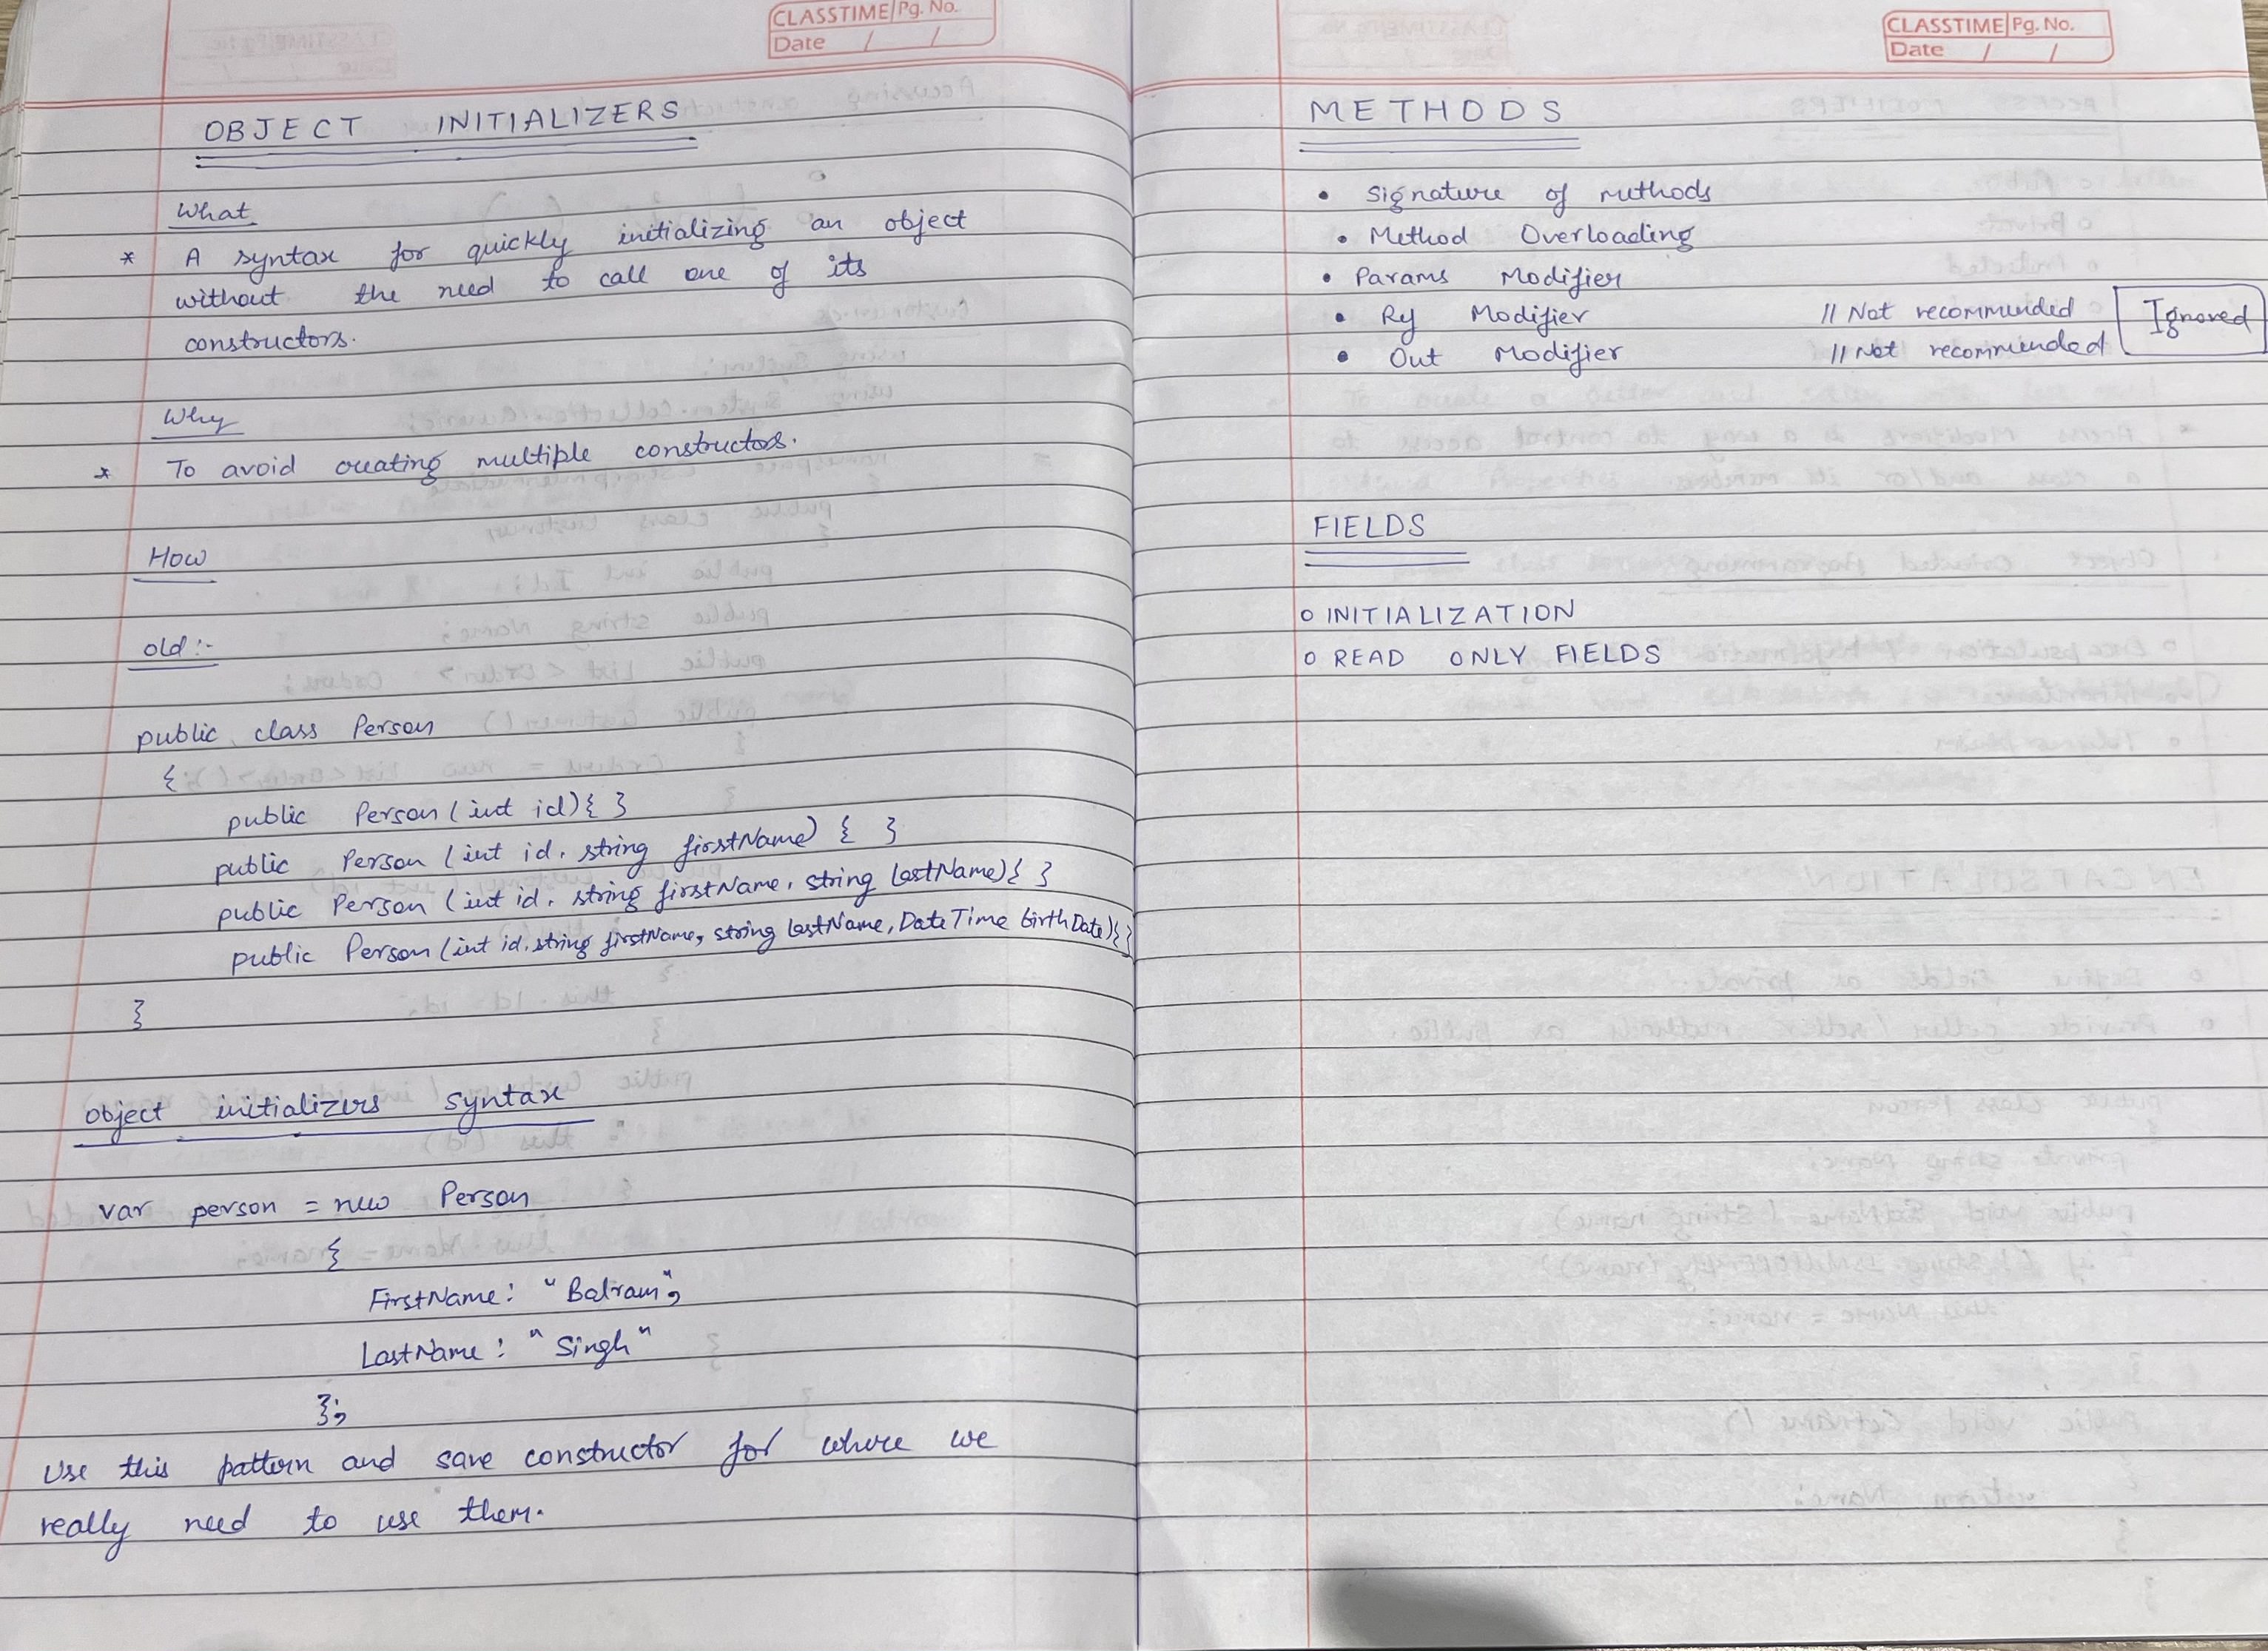 CLASSTIME Pg. No.
Date / /
OBJECT INITIALIZERS
What
* A syntax for quickly initializing an object
without the need to call one of its
constructors.
Why
* To avoid creating multiple constructors.
How
old :-
public class Person
{
public Person (int id) { }
public Person (int id, string firstName) { }
public Person (int id, string firstName, string lastName) { }
public Person (int id, string firstName, string lastName, DateTime birthDate) { }
}
object initializers syntax
var person = new Person
{
FirstName : "Balram",
LastName : "Singh"
};
Use this pattern and save constructor for where we
really need to use them.
CLASSTIME Pg. No.
Date / /
METHODS
• Signature of methods
• Method Overloading
• Params Modifier
• Ref Modifier // Not recommended
• Out Modifier // Not recommended
Ignored
FIELDS
o INITIALIZATION
o READ ONLY FIELDS